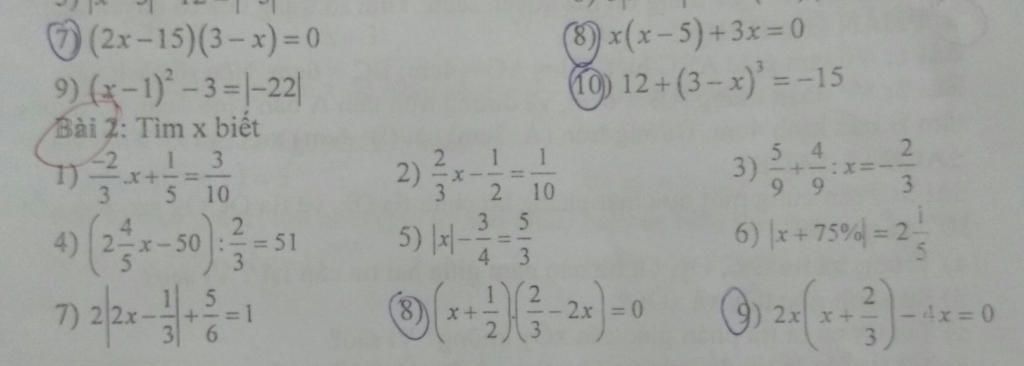 7) (2x − 15)(3 − x) = 0 8) x(x − 5) + 3x = 0
9) (x − 1)² − 3 = |−22| 10) 12 + (3 − x)³ = −15
Bài 2: Tìm x biết
1) −2/3 .x + 1/5 = 3/10 2) 2/3 x − 1/2 = 1/10 3) 5/9 + 4/9 : x = − 2/3
4) (2 4/5 x − 50) : 2/3 = 51 5) |x| − 3/4 = 5/3 6) |x + 75%| = 2 1/5
7) 2|2x − 1/3| + 5/6 = 1 8) (x + 1/2).(2/3 − 2x) = 0 9) 2x(x + 2/3) − 4x = 0